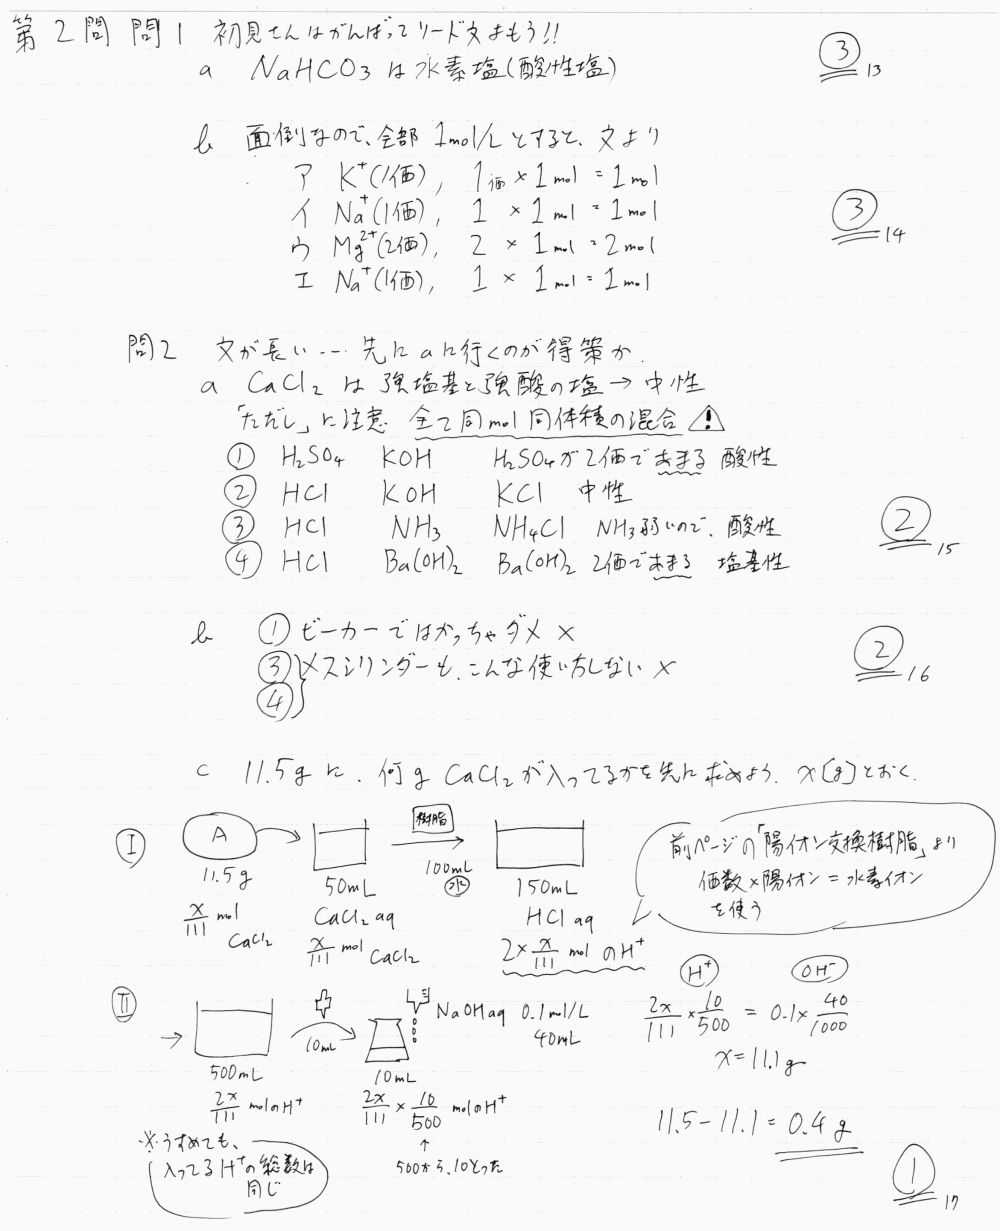 第2問 問1 初見さんはがんばってリード文よもう!!
a NaHCO3 は水素塩(酸性塩) ③ 13
b 面倒なので、全部 1mol/L とすると、文より
ア K⁺(1価), 1価 × 1mol = 1mol
イ Na⁺(1価), 1 × 1mol = 1mol ③ 14
ウ Mg²⁺(2価), 2 × 1mol = 2mol
エ Na⁺(1価), 1 × 1mol = 1mol
問2 文が長い… 先にaに行くのが得策か.
a CaCl₂ は 強塩基と強酸の塩 → 中性
「ただし」に注意 全て同mol同体積の混合 ⚠
① H₂SO₄ KOH H₂SO₄が2価であまる 酸性
② HCl KOH KCl 中性
③ HCl NH₃ NH₄Cl NH₃弱いので、酸性 ② 15
④ HCl Ba(OH)₂ Ba(OH)₂ 2価であまる 塩基性
b ① ビーカーではかっちゃダメ ×
③ メスシリンダーも、こんな使い方しない × ② 16
④
c 11.5g に、何g CaCl₂が入ってるかを先に求めよう. x[g]とおく.
Ⅰ A 樹脂
11.5g 50mL 100mL 水 150mL
x/111 mol CaCl₂ CaCl₂ aq HCl aq
x/111 mol CaCl₂ 2×x/111 mol のH⁺
前ページの「陽イオン交換樹脂」より
価数×陽イオン = 水素イオン
を使う
Ⅱ → 500mL 10mL 10mL NaOHaq 0.1mol/L
40mL
2x/111 molのH⁺ 2x/111 × 10/500 molのH⁺
↑
500から、10とった
※うすめても、
入ってるH⁺の総数は
同じ
H⁺ OH⁻
2x/111 × 10/500 = 0.1× 40/1000
x = 11.1g
11.5 − 11.1 = 0.4 g
① 17